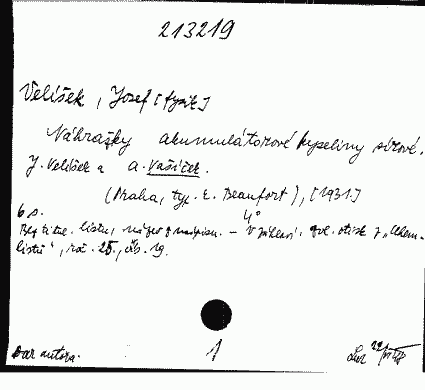 213219
Velíšek, Josef [fysik]
Náhražky akumulátorové kyseliny sírové.
J. Velíšek a A. Vašíček.
(Praha, typ. E. Beaufort), [1931]
6 s. 4°
Bez titul. listu, název z nadpisu. – V záhlaví: zvl. otisk z „Chem.
listů“, roč. 25, čís. 19.
Dar autora. 1